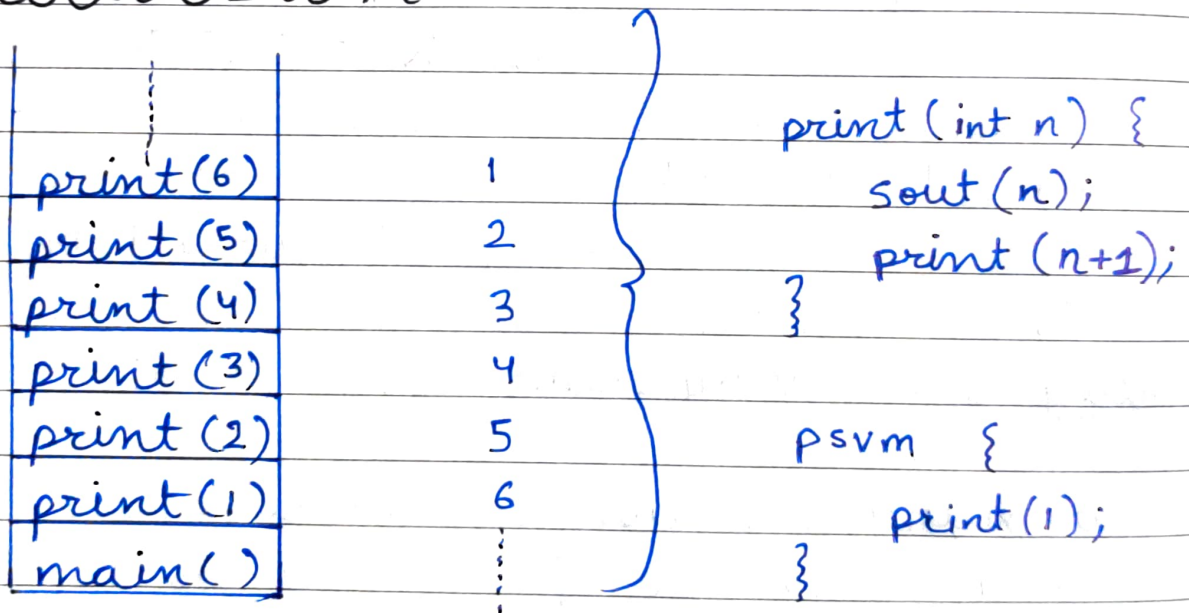 print(6)
print(5)
print(4)
print(3)
print(2)
print(1)
main()
1
2
3
4
5
6
print(int n) {
sout(n);
print(n+1);
}
psvm {
print(1);
}